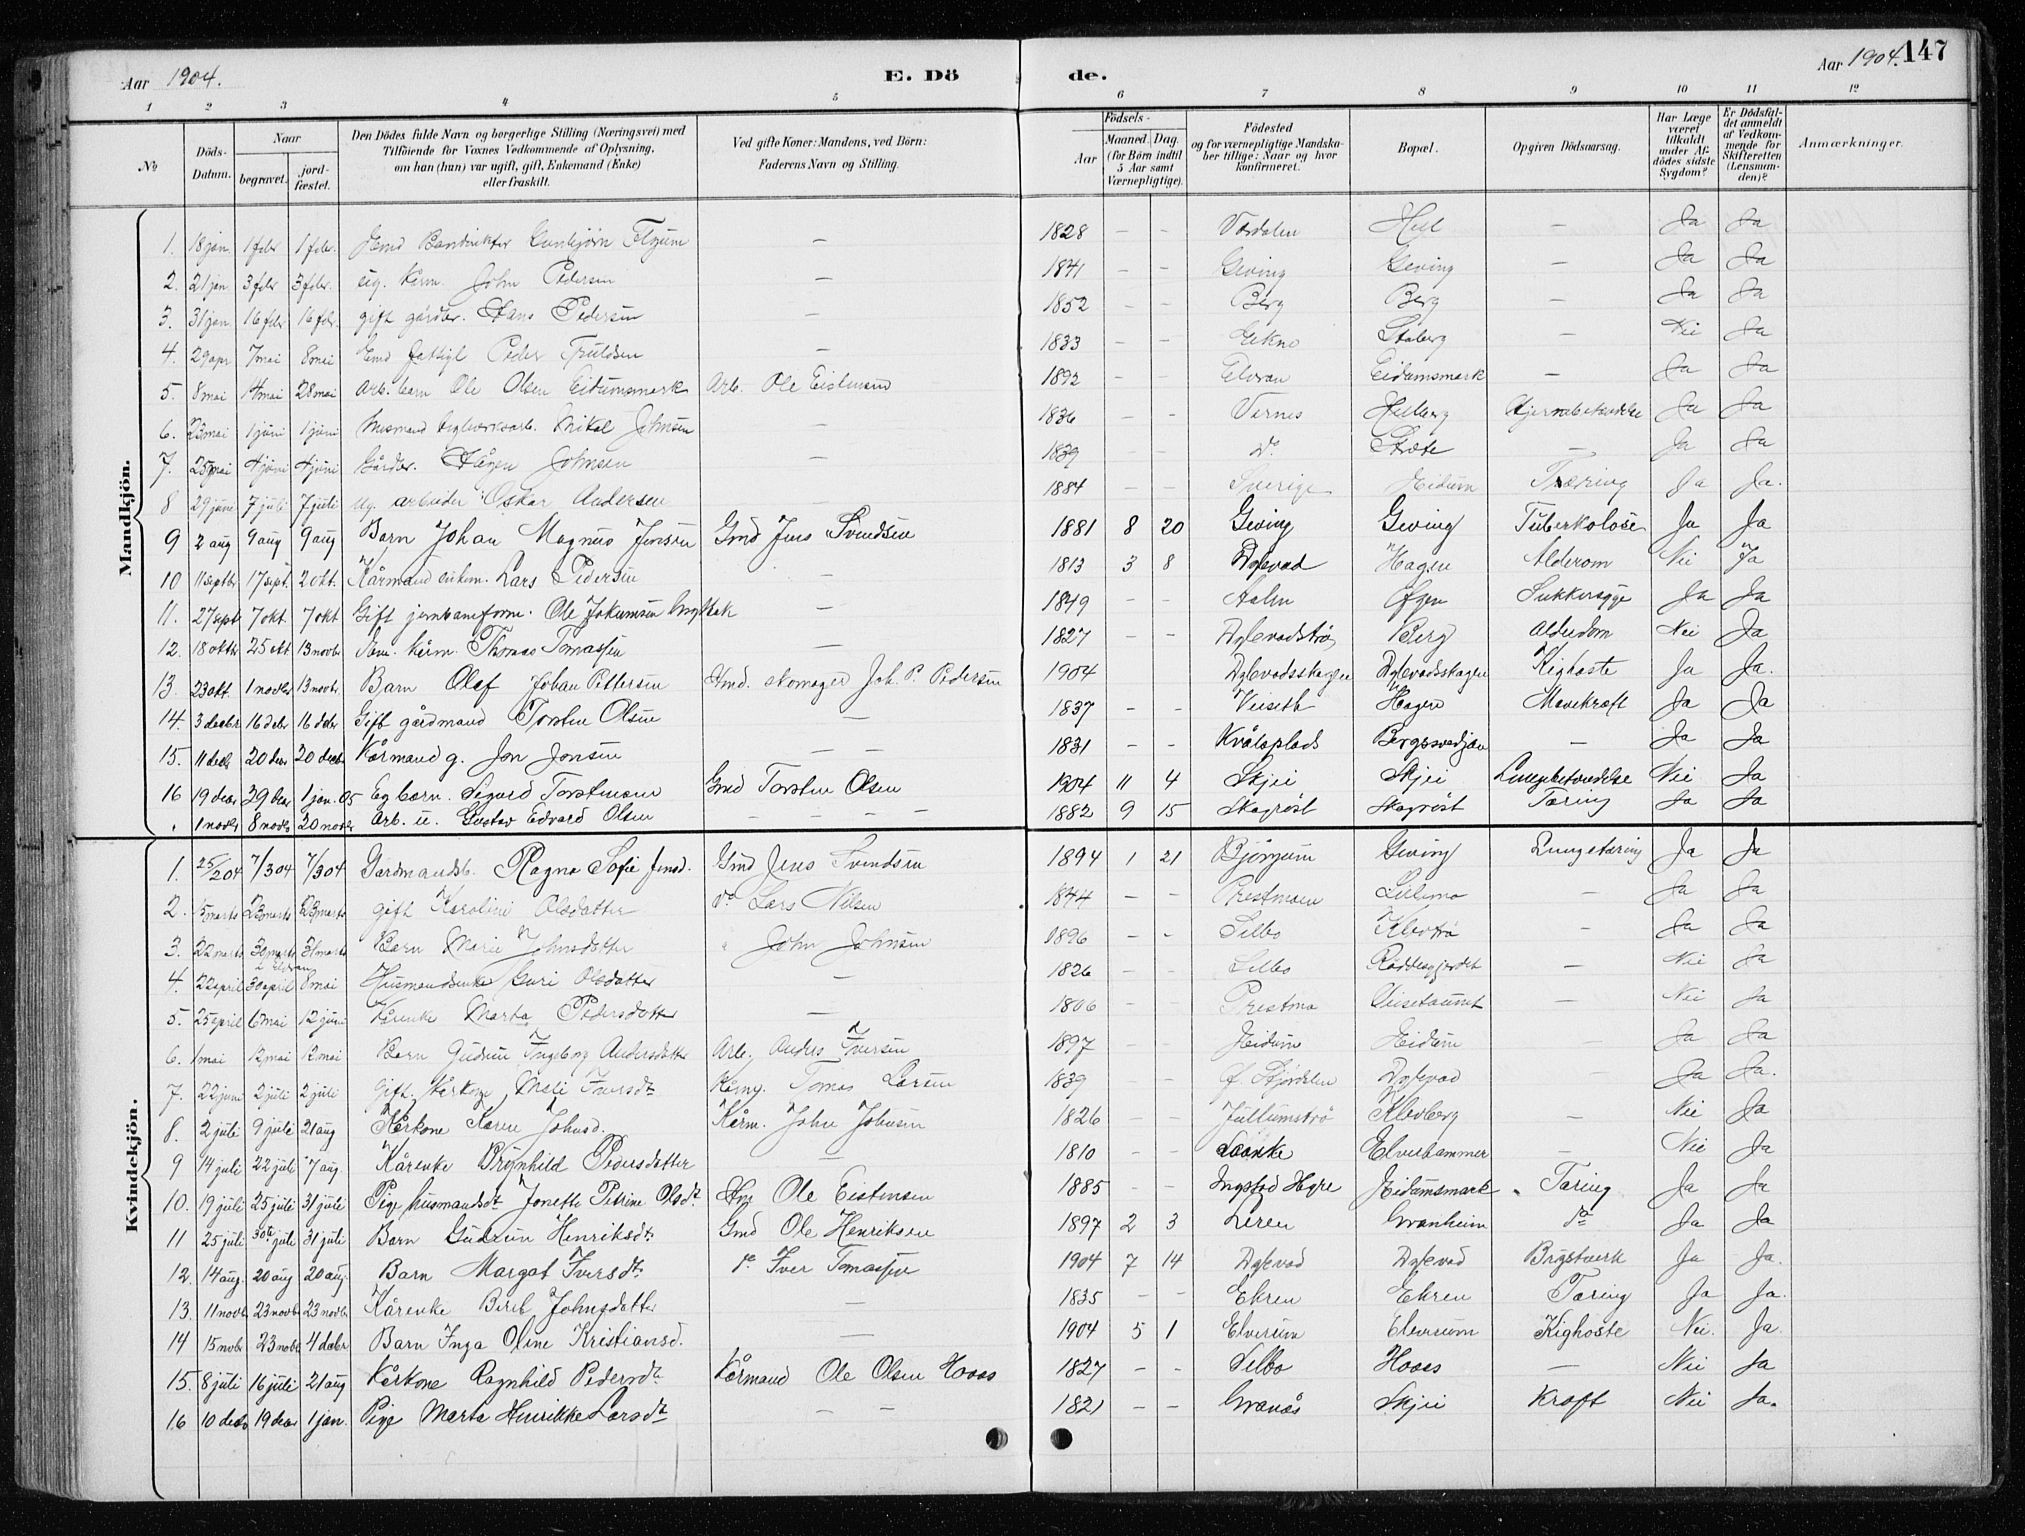 Aar 1904. E. Dö de. Aar 1904. 147
1 2 3 4 5 6 7 8 9 10 11 12
No Döds-Datum. Naar begravet. jordfæstet. Den Dödes fulde Navn og borgerlige Stilling (Næringsvei) med Tilföiende for Voxnes Vedkommende af Oplysning, om han (hun) var ugift, gift, Enkemand (Enke) eller fraskilt. Ved gifte Koner: Mandens, ved Börn: Faderens Navn og Stilling. Aar Födsels- Maaned. Dag. (for Börn indtil 5 Aar samt Værnepligtige). Födested og for værnepligtige Mandskaber tillige: Naar og hvor konfirmeret. Bopæl. Opgiven Dödsaarsag. Har Læge været tilkaldt under Afdödes sidste Sygdom? Er Dödsfaldet anmeldt af Vedkommende for Skifteretten (Lensmanden)? Anmærkninger.
Mandkjön.
1. 18 jan. 1 febr 1 febr. Flyum — 1828 — — Værdalen Hell — Ja Ja
2. 21 jan 3 febr 3 febr. John Pedersen — 1841 — — Geving Geving — Ja Ja
3. 31 jan. 16 febr 16 febr. gift gårdbr. Hans Pedersen — 1852 — — Berg Berg — Ja Ja
4. 29 apr 7 mai 8 mai Peder Truldsen — 1833 — — Ekne — Nei Ja
5. 8 mai 28 mai Arb. barn Ole Olsen Eidumsmark Arb. Ole Eistensen 1892 — — Elvran Eidumsmark — Ja Ja
6. 23 mai 1 juni 1 juni Husmand Mikal Johnsen — 1836 — — Vernes Helberg Hjernebetændelse Ja Ja
7. 25 mai 4 juni 4 juni Gårdbr. Hågen Johnsen — 1839 — — do — Ja Ja
8 29 juni 7 juli 7 juli Ug. arbeider Oskar Andersen 1884 — — Sverige Eidum Tæring Ja Ja.
9 2 aug 9 aug 9 aug Barn Johan Magnus Jensen Gmd Jens Svendsen 1881 8 20 Geving Geving Tuberkolose Ja Ja
10 11 septbr 17 sept. 2 okt. Kårmand enkem. Lars Pedersen — 1813 3 8 Dylevad Hagen Alderdom Nei Ja
11. 27 sept 7 okt. 7 okt Gift jernbaneform. Ole Jokumsen — 1849 — — Aalen Øfgen Sukkersyge Ja Ja
12. 18 oktbr 25 okt 13 novbr kårm. Thomas Tomassen — 1827 — — Berg Alderdom Nei Ja
13. 23 okt. 1 novbr 13 novbr. Barn Olaf Johan Pettersen skomager Joh. P. Pedersen 1904 Dylevadsskagen Dylevadsskagen Kighoste Ja Ja.
14. 3 decbr 16 debr 16 debr Gift gårdmand Torsten Olsen — 1837 — — Veiseth Hagen Mavekræft Ja Ja
15. 11 decbr 20 decbr 20 decbr Kårmand g. Jon Jonsen — — 1831 — — Kvålsplads — Ja Ja
16 19 decbr 29 decbr 1 jan. 05 Eg barn. Sigurd Torstensen Gmd Torsten Olsen 1904 11 4 Skjei Skjei Lungebetændelse Nei Ja
. 1 novbr 8 novbr 20 novbr Arb. u. Gustav Edvard Olsen — — — 1882 9 15 Skagrøst Skagrøst Tæring Ja Ja
Kvindekjön.
1. 25/2 04 7/3 04 7/3 04 Gardmandsb. Ragna Sofie Jensd. Gmd Jens Svendsen 1894 1 21 Bjørgum Geving Lungetæring Ja Ja
2. 5 marts 23 marts 23 marts gift Karoline Olsdatter do Lars Nilsen 1844 — — Prestmoen Lillemo — Ja Ja
3. 22 marts 30 marts 31 marts Barn Marie Johnsdatter " John Johnsen 1896 — — Selbo — Ja Ja
4. 22 april 30 april 8 mai Husmandsenke Guri Olsdatter — 1826 — — Selbo — Nei Ja
5. 25 april 6 mai 12 juni Kårenke Marta Pedersdatter — 1806 — — Prestmo — Nei Ja
6. 1 mai 12 mai 12 mai Barn Gudrun Ingeborg Andersdatter Arb. Anders Iversen 1897 — — Eidum Eidum Ja Ja
7. 22 juni 2 juli 2 juli gift. Kårkone Meli Iversdt Tomas Larsen 1839 — — Ø. Stjørdalen Dylevad Ja Ja.
8. 2 juli 9 juli 21 aug Kårkone Karen Johnsd. Kårm. John Johnsen 1826 — — Jullumstrø Klevberg — Nei Ja
9 14 juli 22 juli 7 aug. Kårenke Brynhild Pedersdatter — 1810 — — Laanke Elverhammer — Nei Ja
10. 19 juli 25 juli 31 juli Pige husmandsdt Jonette Petrine Olsdt Ole Eistensen 1885 — — Ingstad Hegre Eidumsmark Tæring Ja Ja
11 25 juli 30te juli 31 juli Barn Gudrun Henriksdt Gmd Ole Henriksen 1897 2 3 Leren Granheim do Ja Ja
12. 14 aug. 20 aug 20 aug. Barn Margot Iversdt do Iver Tomassen 1904 7 14 Dylevad Dylevad Brystverk Ja Ja.
13. 11 novbr 23 novbr 23 novbr Kårenke Berit Johnsdatter — 1835 — — Ekren Ekren Tæring Ja Ja.
14 15 novbr 23 novbr 4 decbr Barn Inga Oline Kristiansd. — 1904 5 1 Elverum Elverum Kighoste Nei. Ja.
15. 8 juli 16 juli 21 aug Kårkone Ragnhild Pedersdt. Kårmand Ole Olsen Hoaas 1827 — — Selbo Hoaas — Nei Ja
16 10 decbr 19 decbr 1 jan. Pige Marta Henrikke Larsdt — — 1821 — — Granås Skjei Kræft Nei Ja.